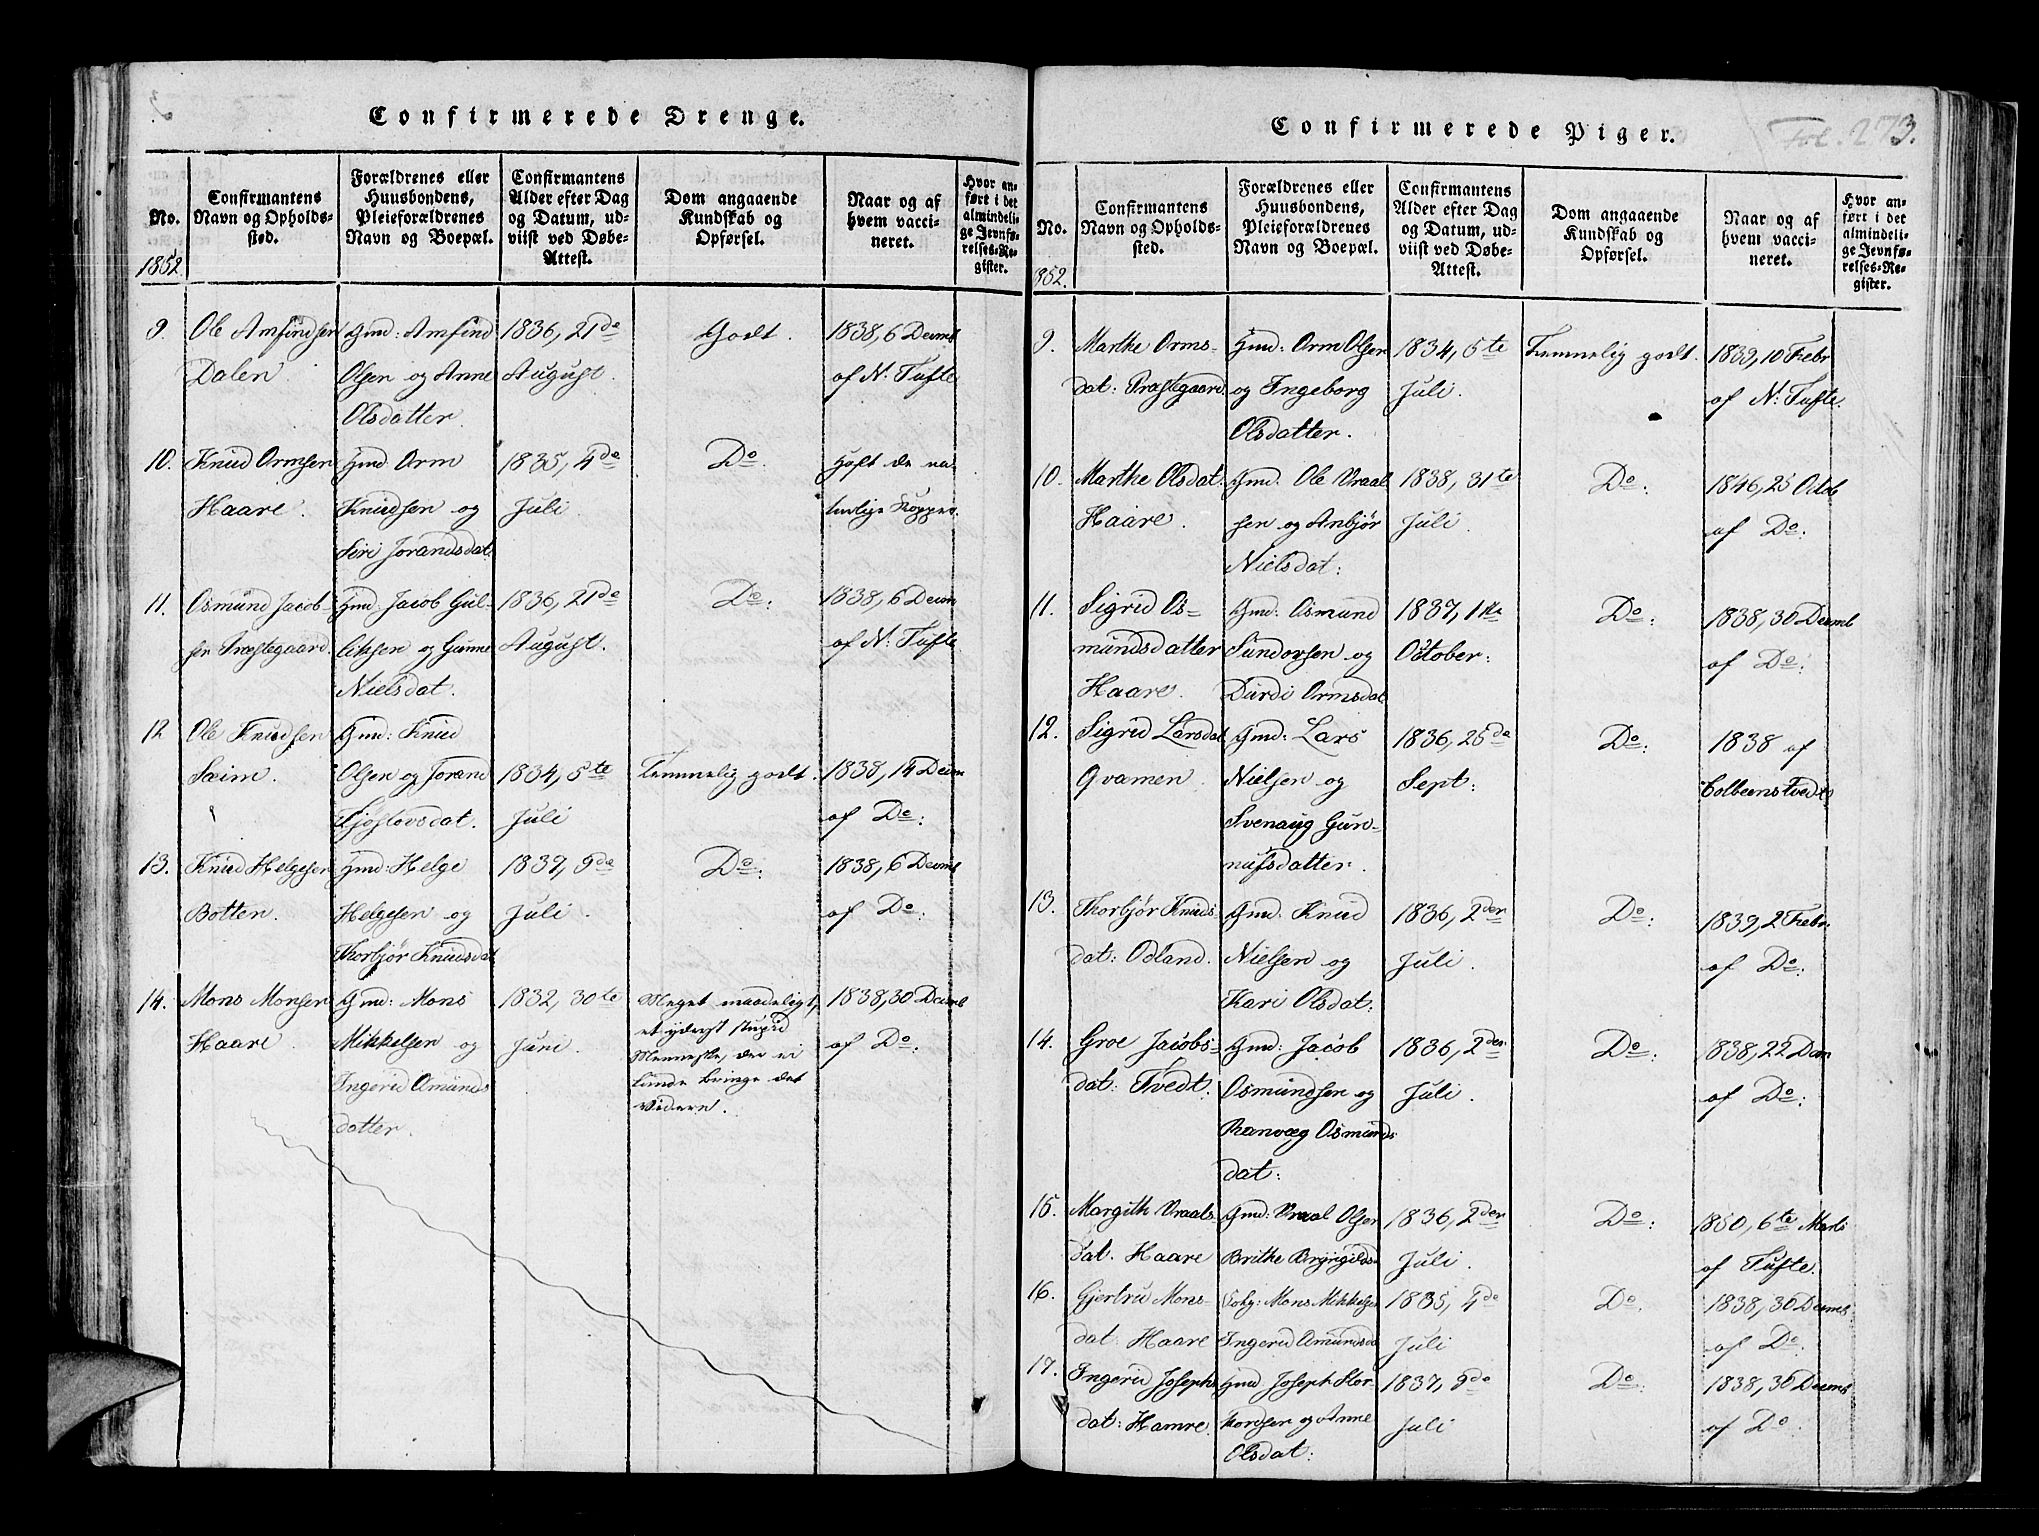 Confirmerede Drenge.
No.
1852
Confirmantens
Navn og Opholds-
sted.
Forældrenes eller
Huusbondens,
Pleieforældrenes
Navn og Boepæl.
Confirmantens
Alder efter Dag
og Datum, ud-
viist ved Døbe-
Attest.
Dom angaaende
Kundskab og
Opførsel.
Naar og af
hvem vacci-
neret.
Hvor an-
ført i det
almindeli-
ge Jevnfø-
relses-Re-
gister.
9.
Ole Amfindsen
Dalen
Gmd: Amfind
Olsen og Anne
Olsdatter.
1836, 21de
August.
Godt.
1838, 6 Decmb
af N: Tufte
10.
Knud Ormsen
Haare.
Gmd. Orm
Knudsen og
Siri Jorandsdat.
1835, 4de
Juli.
Do.
Haft de na-
turlige Kopper.
11.
Osmund Jacob-
sen Præstegaard.
Gmd: Jacob Gul-
liksen og Gunne
Nielsdat.
1836, 21de
August.
Do:
1838, 6 Decm
af N: Tufte
12
Ole Knudsen
Seim.
Gmd: Knud
Olsen og Jorand
Kjostovsdat.
1834, 5te
Juli
Temmelig godt.
1838, 14 Decm
af Do:
13.
Knud Helgesen
Botten.
Gmd: Helge
Helgesen og
Thorbjør Knudsdat
1837, 9de
Juli.
Do:
1838, 6 Decmb
af Do:
14.
Mons Monsen
Haare.
Gmd: Mons
Mikkelsen og
Ingerid Amunds
datter.
1832, 30te
Juni.
Meget maadeligt,
et yderst stupid
Menneske, der ei
kunde bringe det
videre.
1838, 30 Decmb
af Do:
Confirmerede Piger.
Fol. 273.
No.
1852.
Confirmantens
Navn og Opholds-
sted.
Forældrenes eller
Huusbondens,
Pleieforældrenes
Navn og Boepæl.
Confirmantens
Alder efter Dag
og Datum, ud-
viist ved Døbe-
Attest.
Dom angaaende
Kundskab og
Opførsel.
Naar og af
hvem vacci-
neret.
Hvor an-
ført i det
almindeli-
ge Jevnfø-
relses-Re-
gister.
9.
Marthe Orms-
dat: Præstegaard.
Gmd: Orm Olsen
og Ingeborg
Olsdatter.
1834, 5te
Juli.
Temmelig godt.
1839, 10 Febr
af N: Tufte.
10.
Marthe Olsdat.
Haare.
Gmd. Ole Vraal
sen og Anbjør
Nielsdat:
1838, 31te
Juli.
Do:
1846, 25 Octob
af Do:
11.
Sigrid Os-
mundsdatter
Haare.
Gmd: Osmund
Sundovsen og
Durdi Ormsdat
1837, 1ste
October:
Do:
1838, 30 Decmb
af Do:
12.
Sigrid Larsdat
Qvamen.
Gmd: Lars
Nielsen og
Svenaug Gun-
nufsdatter.
1836, 25de
Sept:
Do:
1838 af
Colbeens Tvedt
13.
Thorbjør Knuds
dat: Odland.
Gmd: Knud
Nielsen og
Kari Olsdat:
1836, 2den
Juli.
Do:
1839, 2 Febr:
af Do:
14.
Groe Jacobs-
dat: Tvedt.
Gmd: Jacob
Osmundsen og
Ranvæg Osmunds
dat:
1836, 2den
Juli.
Do:
1838, 22 Dec
af Do:
15.
Margith Vraals-
dat. Haare
Gmd: Vraal Olsen
Brithe Brynjilds-
1836, 2den
Juli.
Do:
1850, 6te Marts
af Tufte.
16.
Gjertru Mons-
dat: Haare
Mons Mikkelsen
Ingerid Amundsda
1835, 4de
Juli
Do.
1838, 30 Decmb
af Do:
17.
Ingerid Joseph
dat: Hamre.
Gmd. Joseph Stor-
thordsen og Anne
Olsdat:
1837, 9de
Juli
Do:
1838, 30 Decmb
af Do: